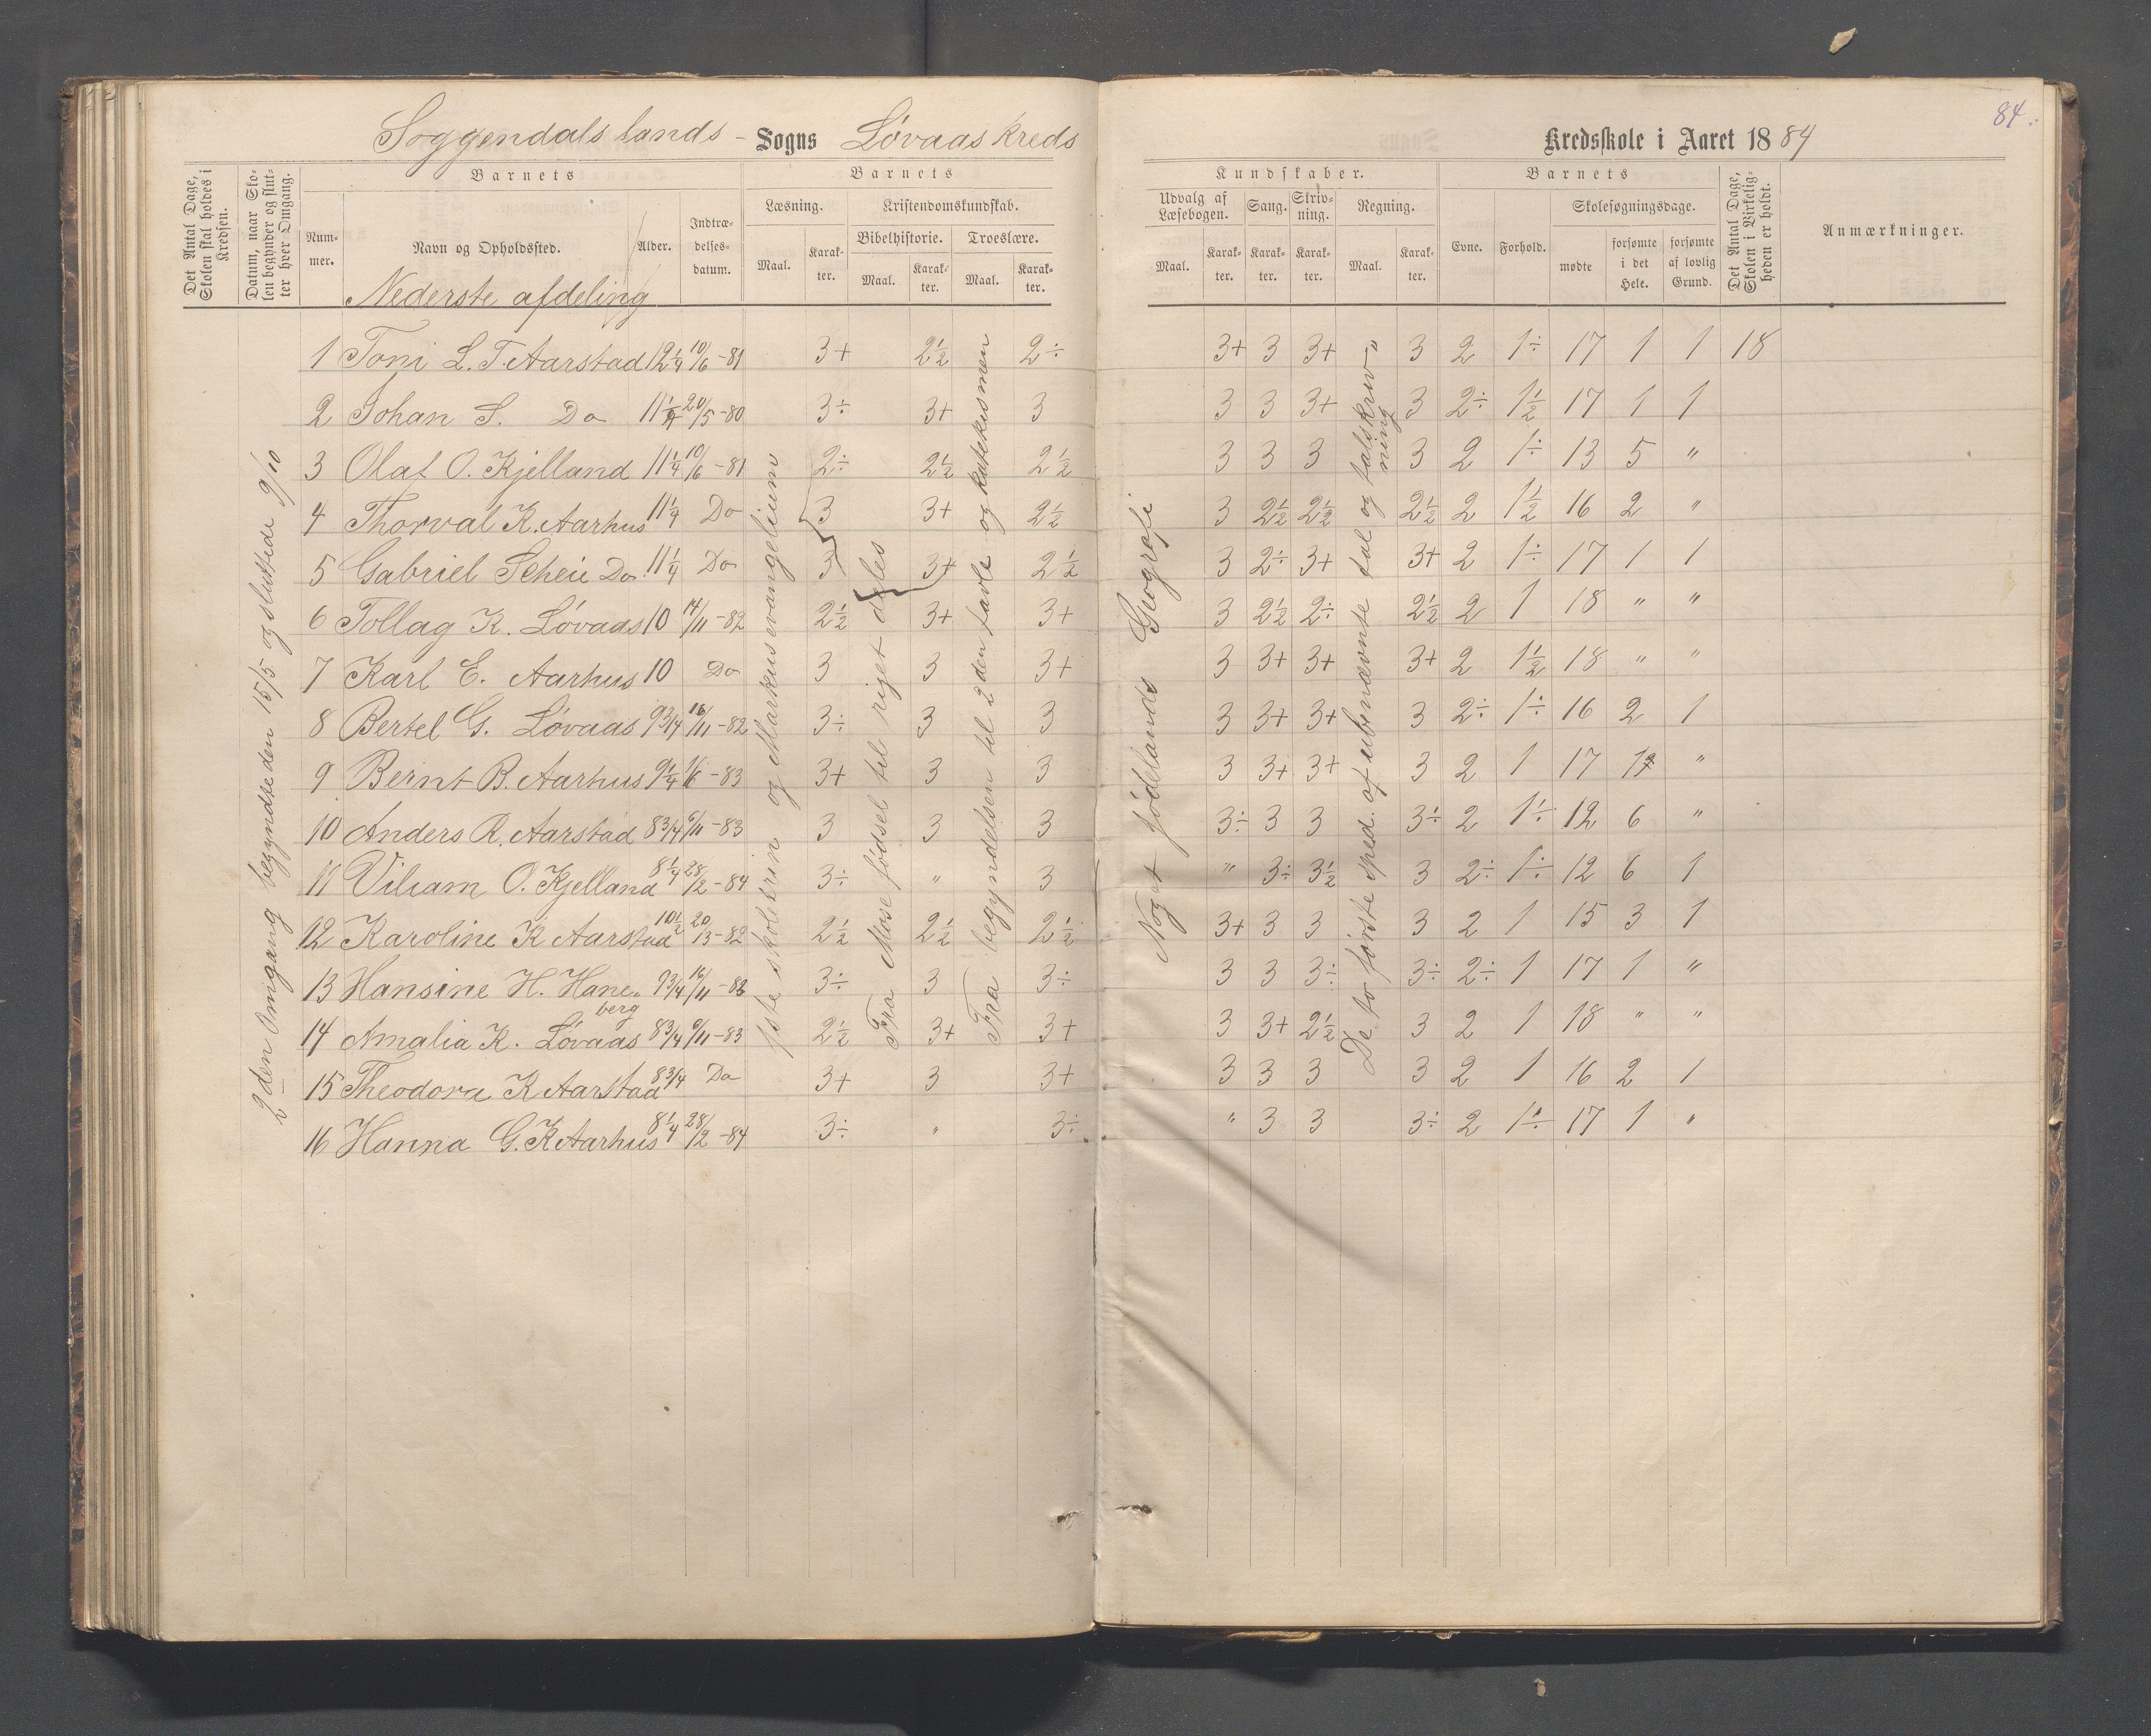 84.
Soggendals lands - Sogns Løvaas kreds Kredsskole i Aaret 1884
Det Antal Dage, Skolen skal holdes i Kredsen.
Datum, naar Skolen begynder og slutter hver Omgang.
Barnets
Nummer.
Navn og Opholdssted.
Alder.
Indtrædelsesdatum.
Barnets
Læsning.
Maal.
Karakter.
Kristendomskundskab.
Bibelhistorie.
Maal.
Karakter.
Troeslære.
Maal.
Karakter.
Kundskaber.
Udvalg af Læsebogen.
Maal.
Karakter.
Sang.
Karakter.
Skrivning.
Karakter.
Regning.
Maal.
Karakter.
Barnets
Evne.
Forhold.
Skolesøgningsdage.
mødte
forsømte i det Hele.
forsømte af lovlig Grund.
Det Antal Dage, Skolen i Virkeligheden er holdt.
Anmærkninger.
Nederste afdeling
2den Omgang begyndte den 15/5 og sluttede 9/10
1ste skoletrin og Markus evangelium
Fra Mose fødsel til riget deles
Fra begyndelsen til 2den tavle og katekismen
Noget fødelands Geografi
De to første sped. af ubenævnte tal og talskrivning
1 Toni L. T. Aarstad 12 1/4 10/6 -81 3+ 2 1/2 2÷ 3+ 3 3+ 3 2 1÷ 17 1 1 18
2 Johan S. Do 11 1/4 20/5 -80 3÷ 3+ 3 3 3 3+ 3 2÷ 1 1/2 17 1 1
3 Olaf O. Kjelland 11 1/4 10/6 -81 2÷ 2 1/2 2 1/2 3 3 3 3 2 1÷ 13 5 "
4 Thorval K. Aarhus 11 1/4 Do 3 3+ 2 1/2 3 2 1/2 2 1/2 2 1/2 2 1 1/2 16 2 "
5 Gabriel Scheie Do. 11 1/4 Do 3 3+ 2 1/2 3 2÷ 3+ 3+ 2 1÷ 17 1 1
6 Tollag K. Løvaas 10 14/11 -82 2 1/2 3+ 3+ 3 2 1/2 2÷ 2 1/2 2 1 18 " "
7 Karl E. Aarhus 10 Do 3 3 3+ 3 3+ 3+ 3+ 2 1 1/2 18 " "
8 Bertel G. Løvaas 9 3/4 16/11 -82 3÷ 3 3 3 3+ 3+ 3 2÷ 1÷ 16 2 1
9 Bernt B. Aarhus 9 1/4 1/6 -83 3+ 3 3 3 3+ 3+ 3 2 1 17 1 "
10 Anders R. Aarstad 8 3/4 6/11 -83 3 3 3 3÷ 3 3 3÷ 2 1÷ 12 6 "
11 Viliam O. Kjelland 8 1/4 28/2 -84 3÷ " 3 " 3÷ 3 1/2 3 2÷ 1÷ 12 6 1
12 Karoline K Aarstad 10 1/2 20/3 -82 2 1/2 2 1/2 2 1/2 3+ 3 3 3 2 1 15 3 1
13 Hansine H. Haneberg 9 3/4 16/11 -83 3÷ 3 3÷ 3 3 3÷ 3÷ 2÷ 1 17 1 "
14 Amalia K. Løvaas 8 3/4 6/11 -83 2 1/2 3+ 3+ 3 3+ 2 1/2 3 2 1 18 " "
15 Theodora K Aarstad 8 3/4 Do 3+ 3 3+ 3 3 3 3 2 1 16 2 1
16 Hanna G. K Aarhus 8 1/4 28/2 -84 3÷ " 3÷ " 3 3 3÷ 2 1÷ 17 1 "